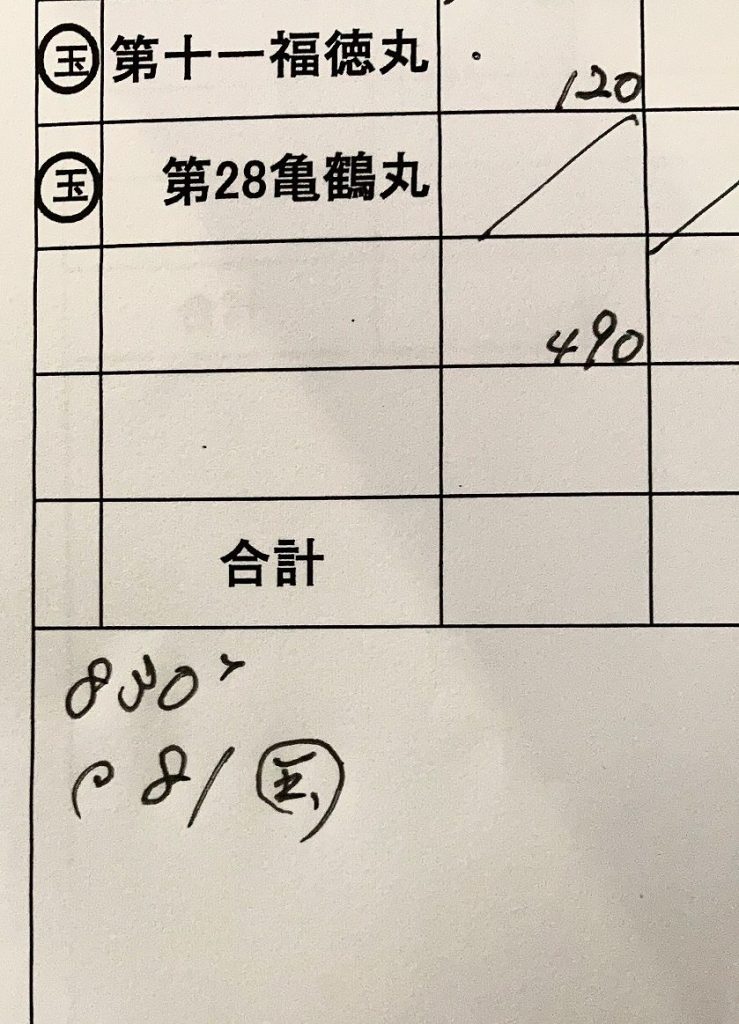 玉 第十一福徳丸 120
玉 第28亀鶴丸
490
合計
830
81 玉